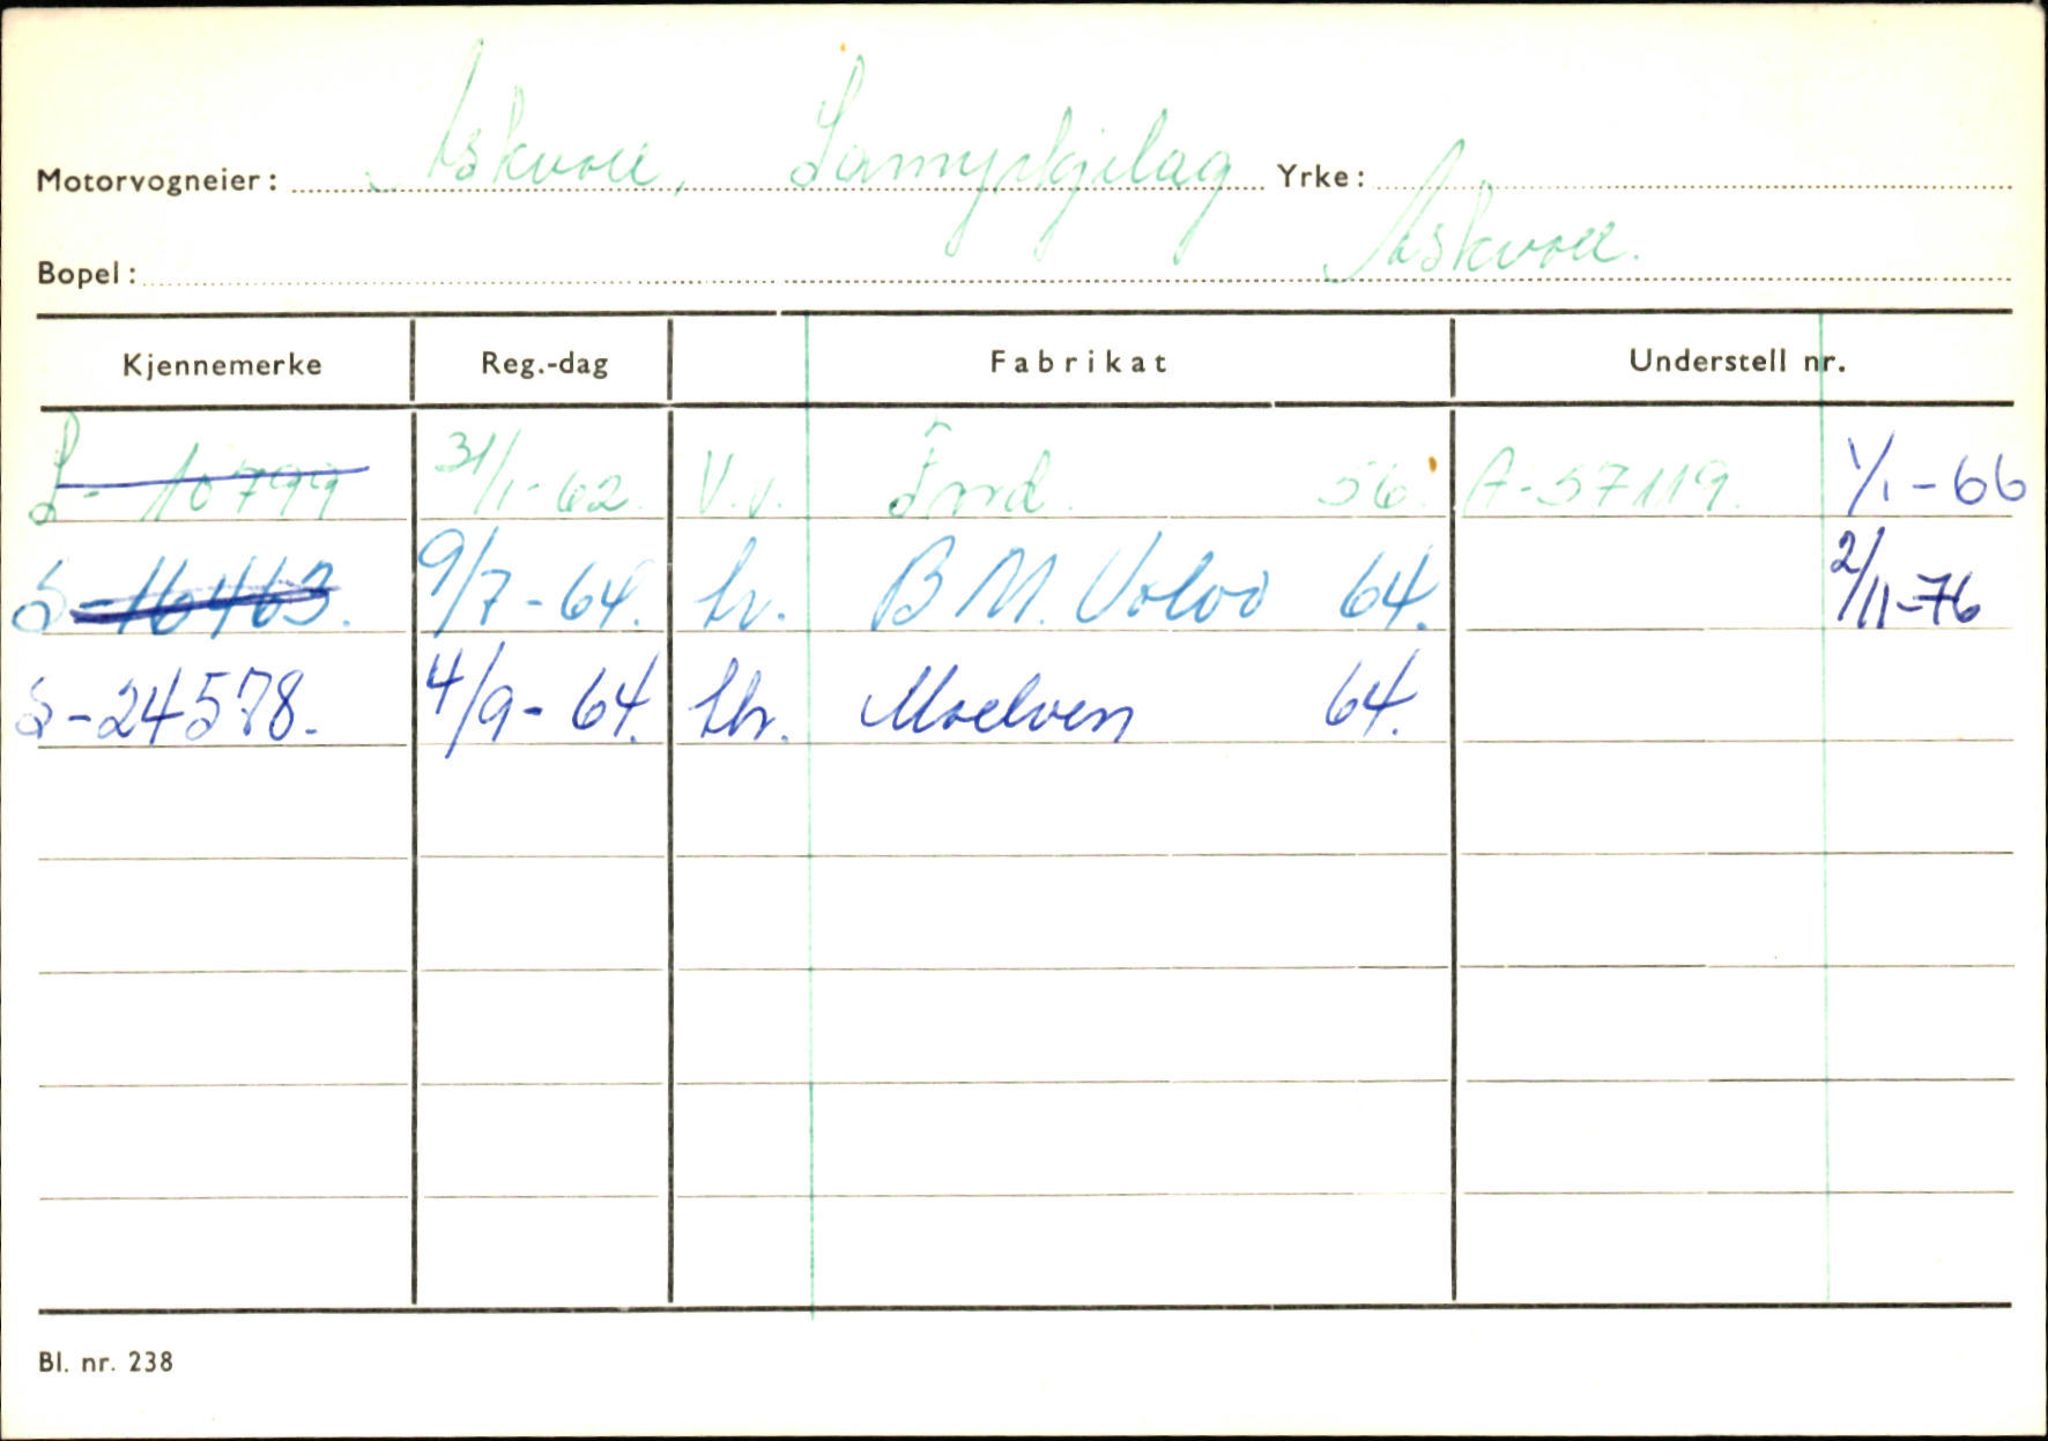 Motorvogneier: Askvoll, Samyrkjelag Yrke:
Bopel: Askvoll.
Kjennemerke Reg.-dag Fabrikat Understell nr.
S-10799 31/1-62. V.v. Ford. 56. A-57119. 1/1-66
S-16463. 9/7-64. tr. B M. Volvo 64. 2/11-76
S-24578. 4/9-64. thr. Moelven 64.
Bl. nr. 238